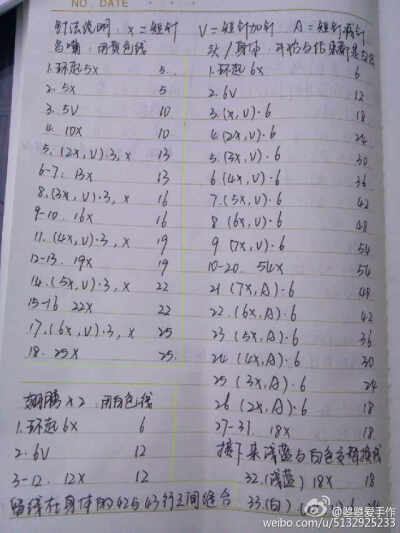 NO. DATE
针法说明: x = 短针 V = 短针加针 A = 短针减针
鸟嘴: 用黄色线
1.环起5x 5
2. 5x 5
3. 5V 10
4. 10x 10
5. (2x,V)·3, x 13
6-7. 13x 13
8.(3x,V)·3, x 16
9-10. 16x 16
11. (4x,V)·3, x 19
12-13. 19x 19
14.(5x,V)·3, x 22
15-16 22x 22
17.(6x,V)·3, x 25
18. 25x 25
翅膀x2 用白色线
1.环起6x 6
2. 6V 12
3-12. 12x 12
留线在身体的42与43行之间缝合
头/身体:
1.环起6x 6
2. 6V 12
3.(x,V)·6 18
4.(2x,V)·6 24
5.(3x,V)·6 30
6(4x,V)·6 36
7.(5x,V)·6 42
8 (6x,V)·6 48
9 (7x,V)·6 54
10-20. 54x 54
21 (7x,A)·6 48
22.(6x,A)·6 42
23 (5x,A)·6 36
24 (4x,A)·6 30
25 (3x,A)·6 24
26 (2x,A)·6 18
27-31. 18x 18
接下来浅蓝与白色交替换线
32.(浅蓝) 18x 18
33.(白)
@婆婆爱手作
weibo.com/u/5132925233